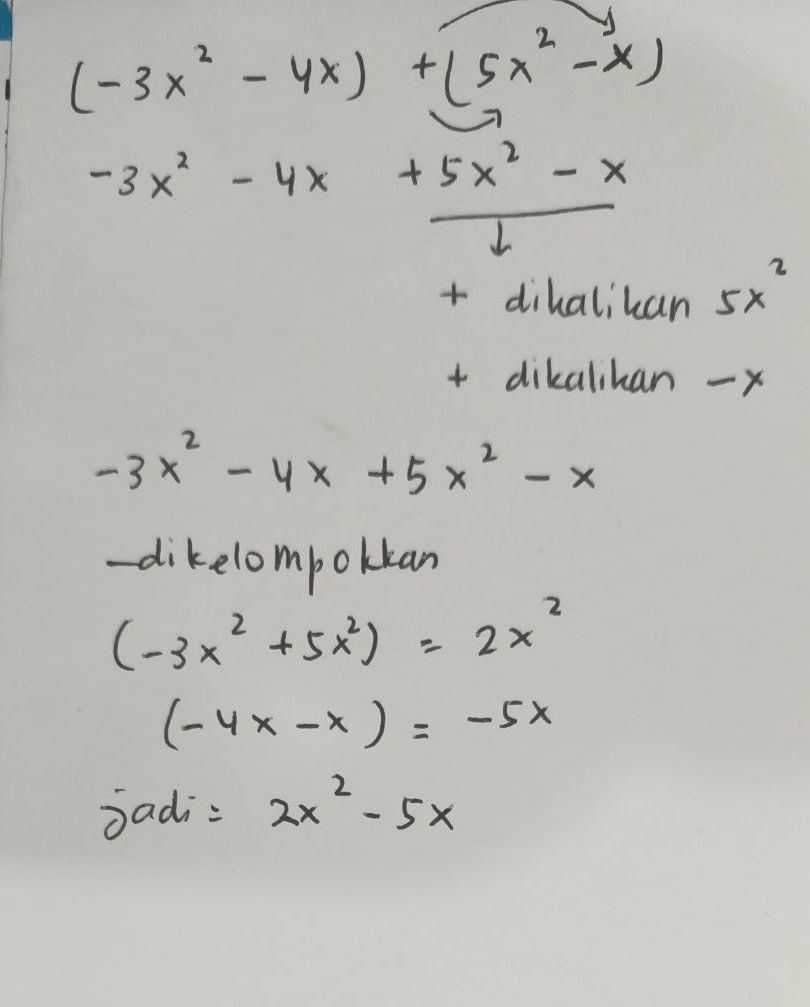 (-3x² - 4x) + (5x² - x)
-3x² - 4x + 5x² - x
+ dikalikan 5x²
+ dikalikan -x
-3x² - 4x + 5x² - x
-dikelompokkan
(-3x² + 5x²) = 2x²
(-4x - x) = -5x
jadi = 2x² - 5x